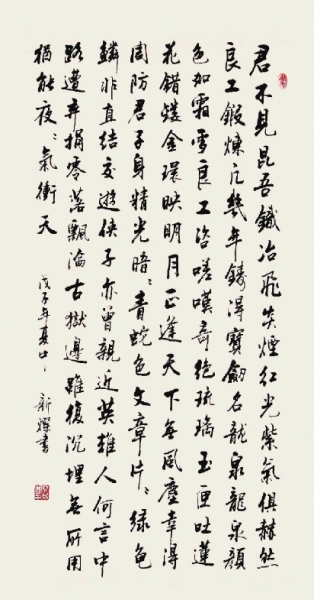 君不見昆吾鐵冶飛炎煙紅光紫氣俱赫然
良工鍛煉凡幾年鑄得寶劍名龍泉龍泉顏
色如霜雪良工咨嗟嘆奇絕琉璃玉匣吐蓮
花錯鏤金環映明月正逢天下無風塵幸得
周防君子身精光暗々青蛇色文章片々綠龜
鱗非直結交遊俠子亦曾親近英雄人何言中
路遭棄捐零落飄淪古獄邊雖復沉埋無所用
猶能夜々氣衝天
戊子年夏中
新燦書